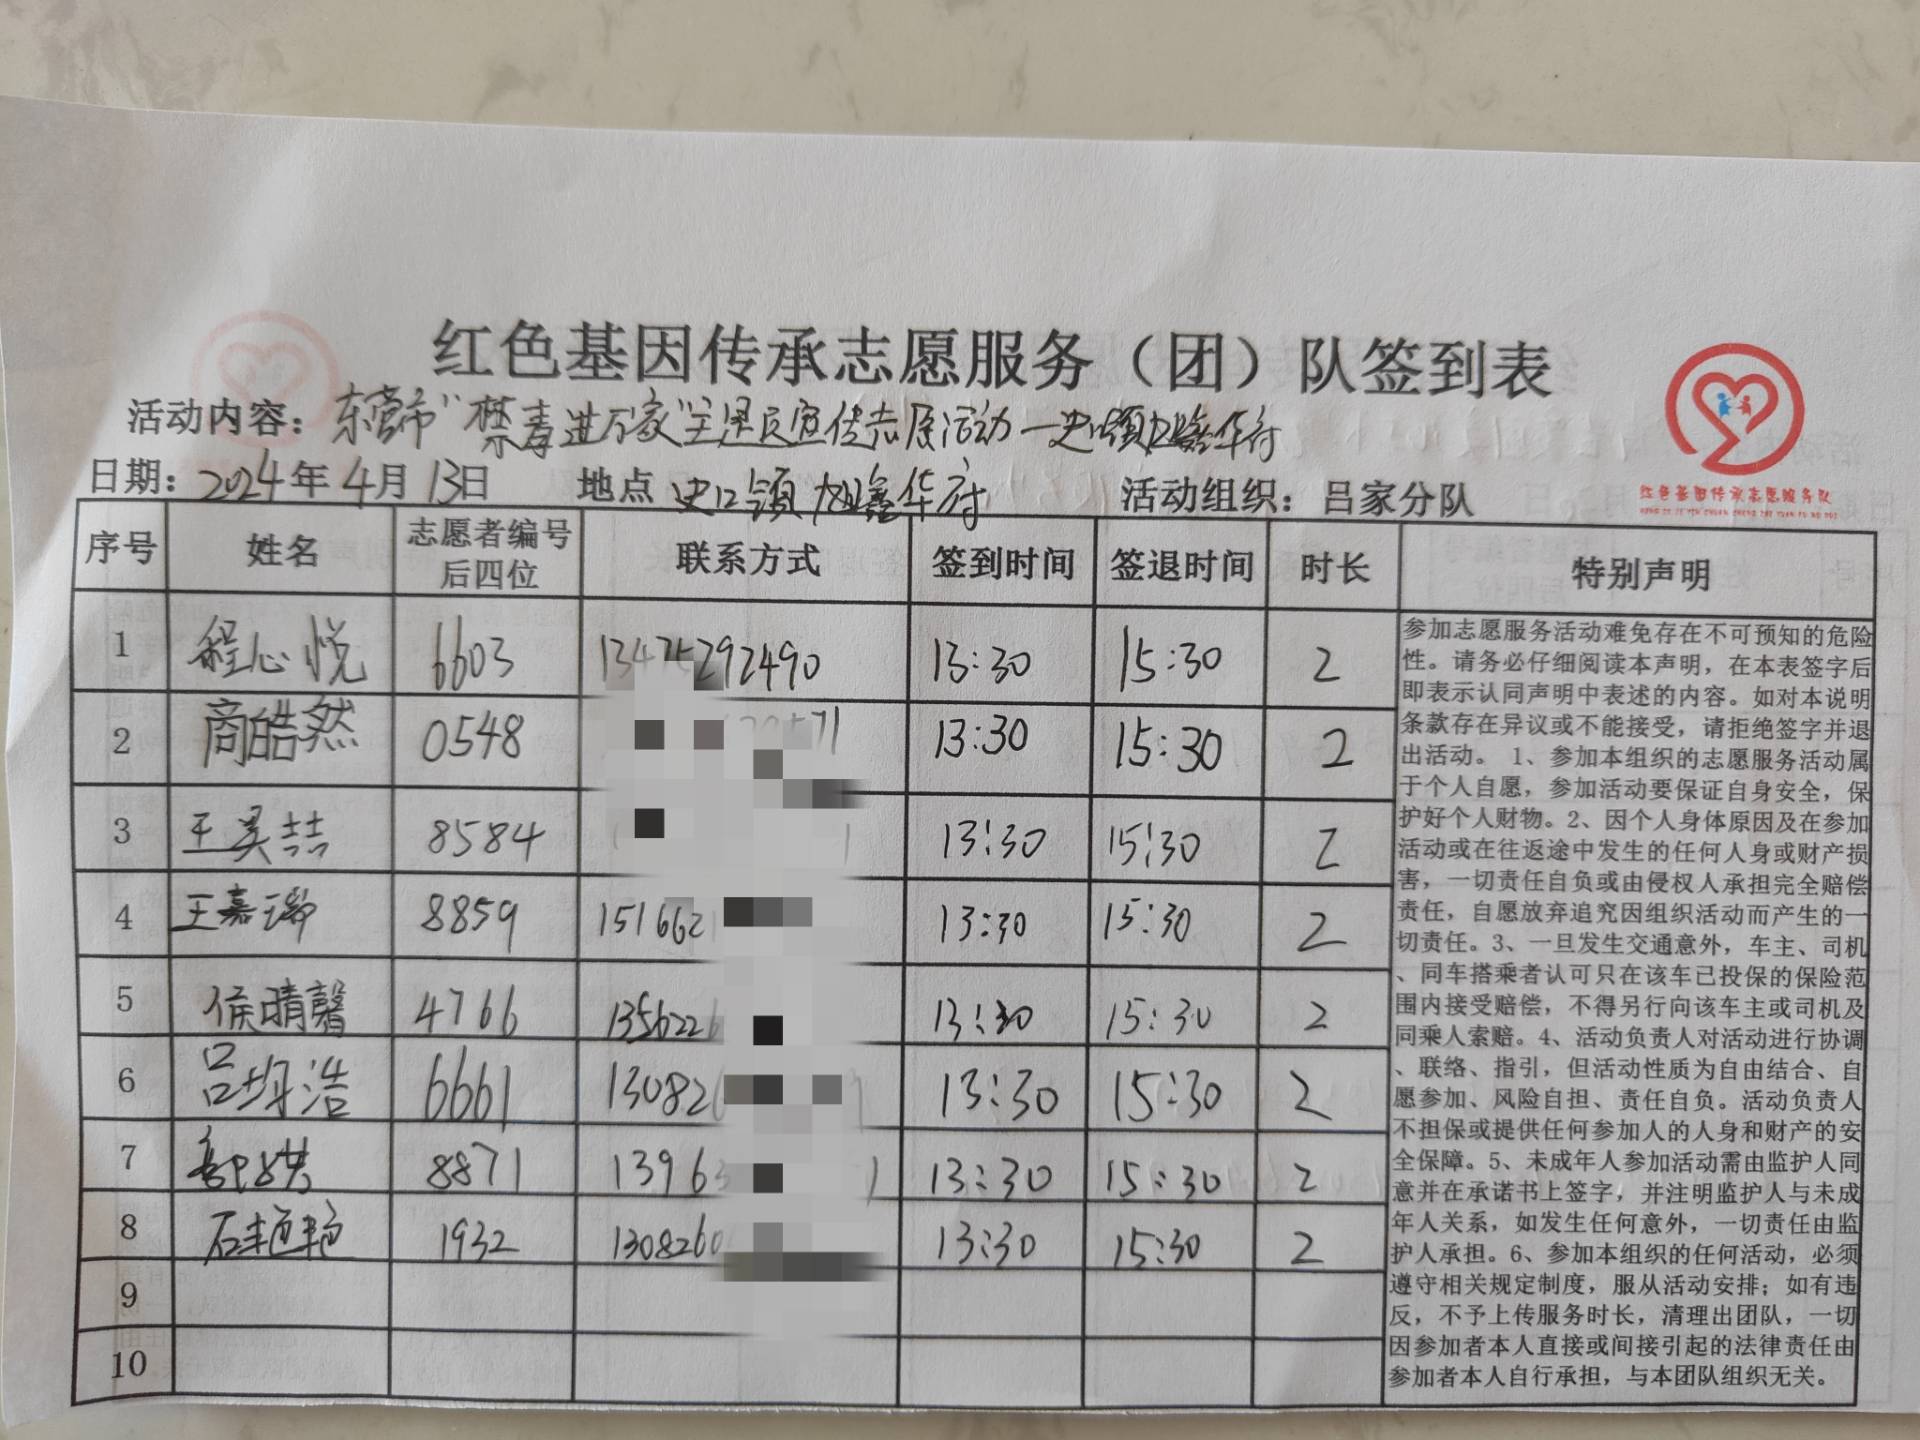 红色基因传承志愿服务（团）队签到表
活动内容：东营市“禁毒进万家”全民宣传志愿活动—史口镇旭鑫华府
日期：2024年4月13日 地点 史口镇旭鑫华府 活动组织：吕家分队
红色基因传承志愿服务队
序号 姓名 志愿者编号后四位 联系方式 签到时间 签退时间 时长 特别声明
1 程心悦 6603 13475292490 13:30 15:30 2
2 商皓然 0548 571 13:30 15:30 2
3 王昊喆 8584 13:30 15:30 2
4 王嘉瑞 8859 1516621 13:30 15:30 2
5 侯晴馨 4766 1356226 13:30 15:30 2
6 吕浩 6661 13082 13:30 15:30 2
7 8871 13963 13:30 15:30 2
8 石艳艳 1932 1308260 13:30 15:30 2
9
10
参加志愿服务活动难免存在不可预知的危险
性。请务必仔细阅读本声明，在本表签字后
即表示认同声明中表述的内容。如对本说明
条款存在异议或不能接受，请拒绝签字并退
出活动。 1、参加本组织的志愿服务活动属
于个人自愿，参加活动要保证自身安全，保
护好个人财物。2、因个人身体原因及在参加
活动或在往返途中发生的任何人身或财产损
害，一切责任自负或由侵权人承担完全赔偿
责任，自愿放弃追究因组织活动而产生的一
切责任。3、一旦发生交通意外，车主、司机
、同车搭乘者认可只在该车已投保的保险范
围内接受赔偿，不得另行向该车主或司机及
同乘人索赔。4、活动负责人对活动进行协调
、联络、指引，但活动性质为自由结合、自
愿参加、风险自担、责任自负。活动负责人
不担保或提供任何参加人的人身和财产的安
全保障。5、未成年人参加活动需由监护人同
意并在承诺书上签字，并注明监护人与未成
年人关系，如发生任何意外，一切责任由监
护人承担。6、参加本组织的任何活动，必须
遵守相关规定制度，服从活动安排；如有违
反，不予上传服务时长，清理出团队，一切
因参加者本人直接或间接引起的法律责任由
参加者本人自行承担，与本团队组织无关。